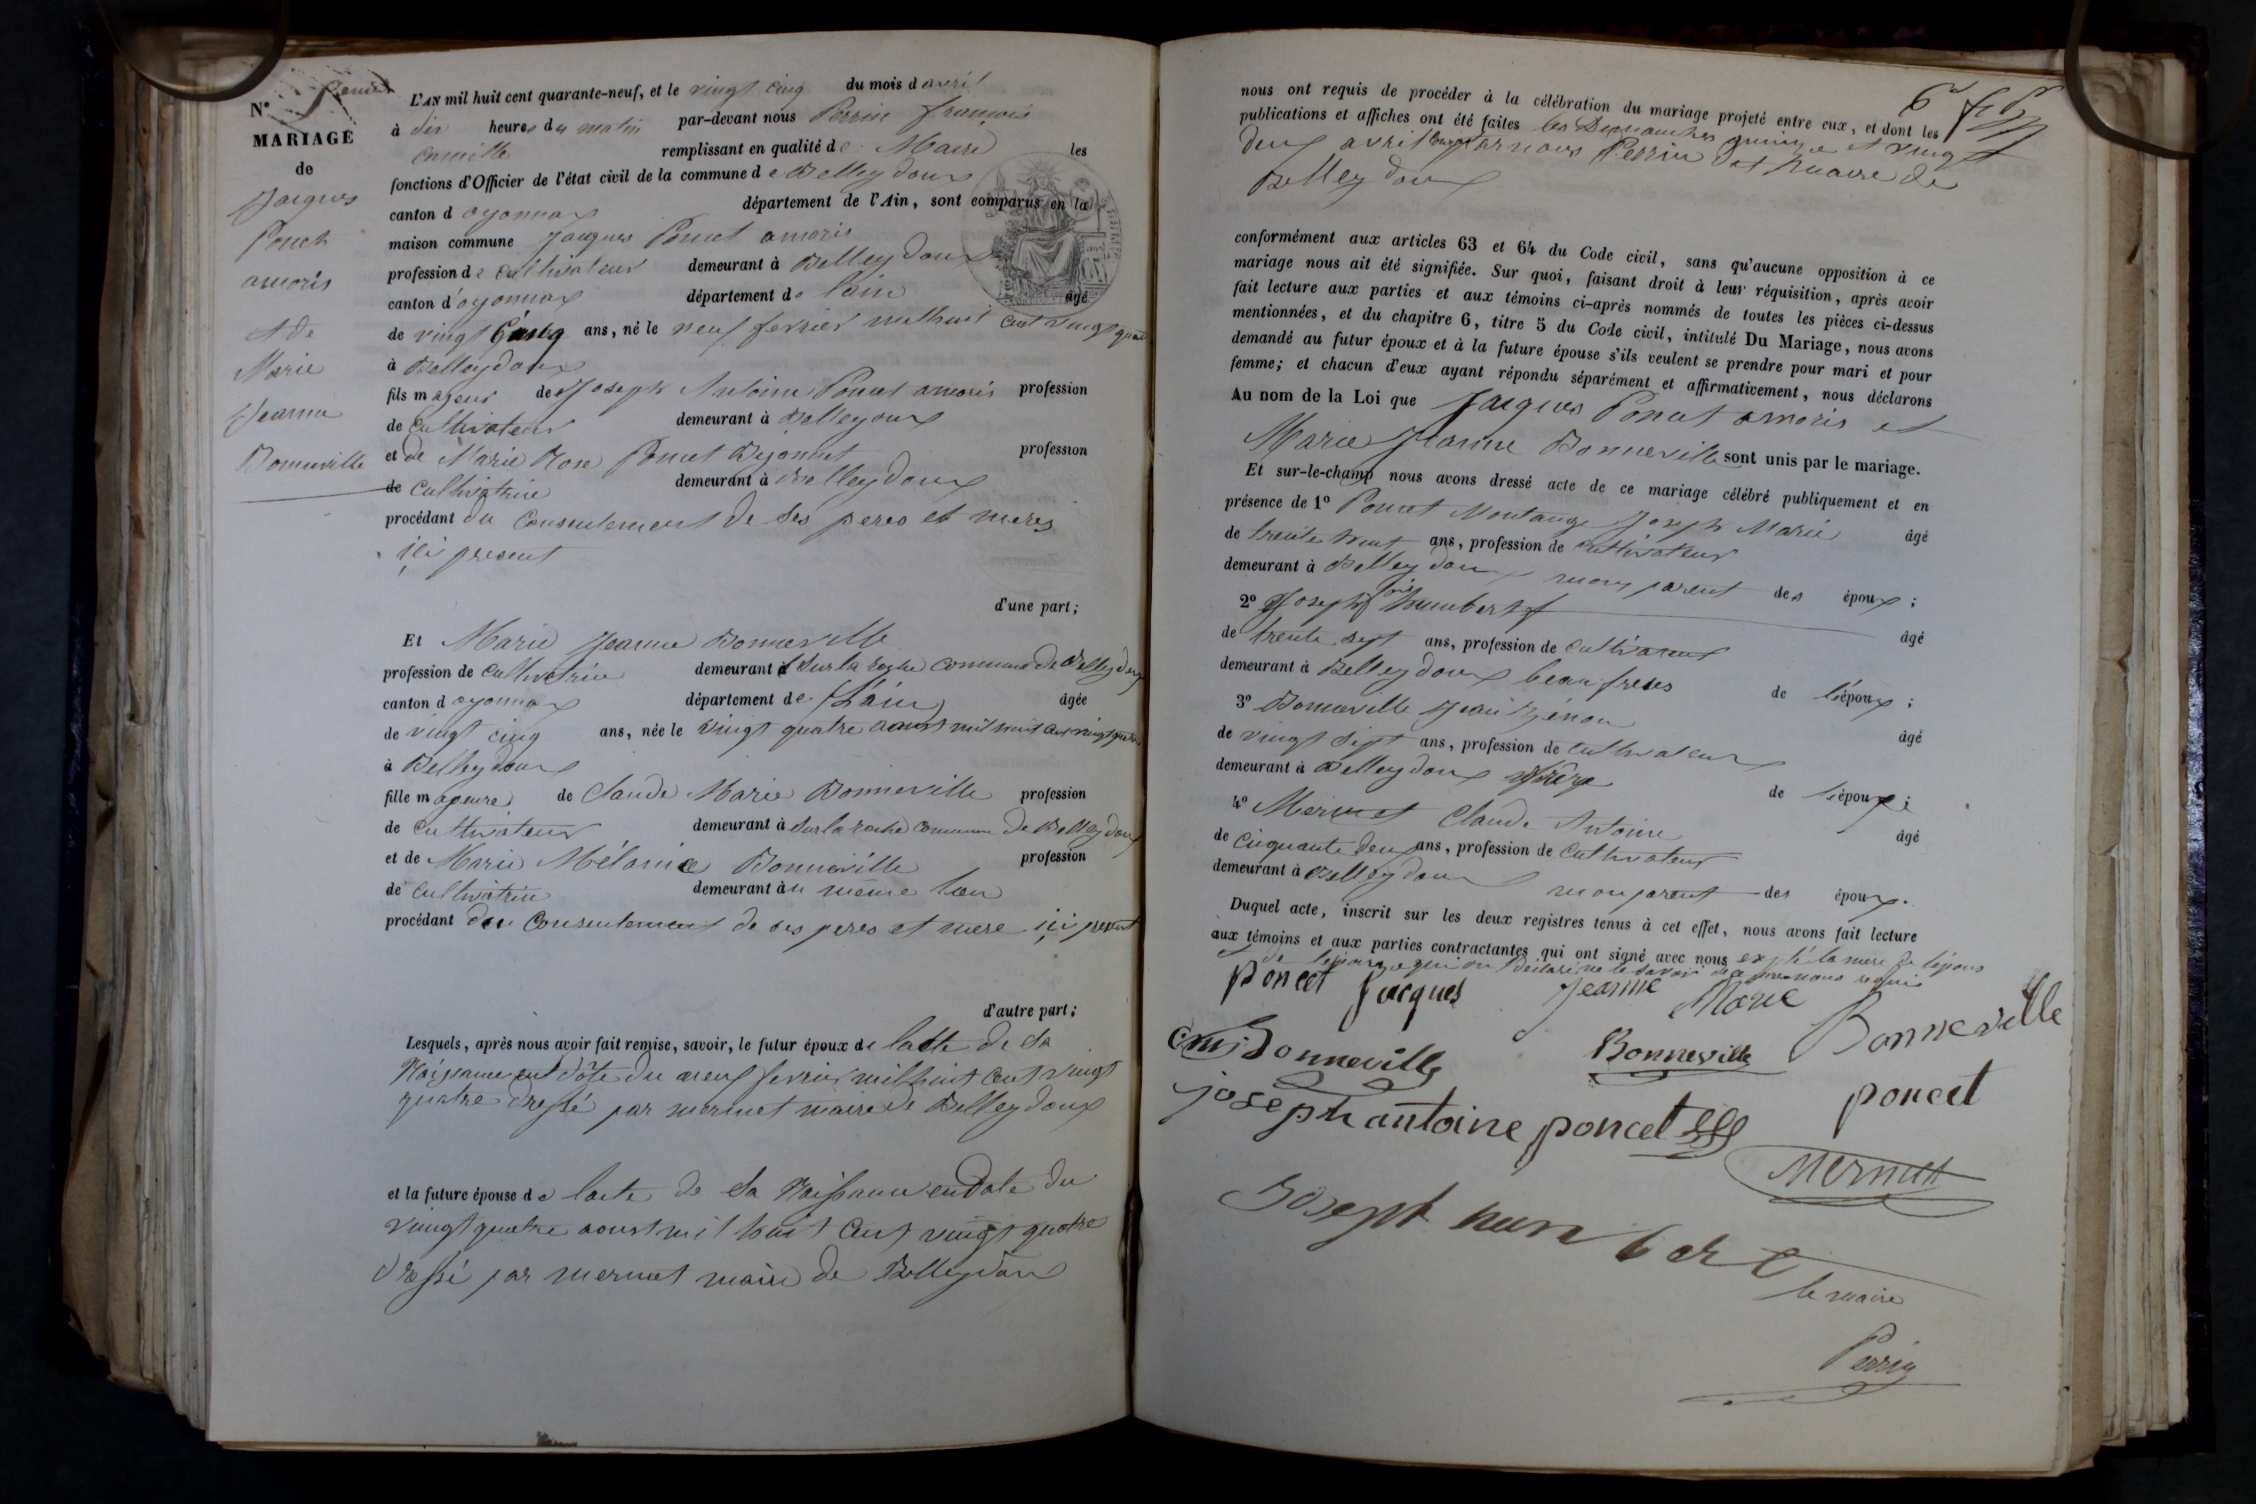 N° 
MARIAGE
de
Jacques
Poncet
amoris
et de
Marie
Jeanne
Bonneville
L'AN mil huit cent quarante-neuf, et le vingt cinq du mois d avril
à dix heures du matin par-devant nous Perrin françois
Camille remplissant en qualité de Maire les
fonctions d'Officier de l'état civil de la commune de Belleydoux
canton d oyonnax département de l'Ain, sont comparus en la
maison commune Jacques Poncet amoris
profession de Cultivateur demeurant à Belleydoux
canton d'oyonnax département de lain âgé
de vingt Cinq ans, né le neuf fevrier mil huit cent vingt quatre
à Belleydoux
fils majeur de Joseph Antoine Poncet amoris profession
de Cultivateur demeurant à Belleyoux
et de Marie Rose Poncet Bijonnet profession
de cultivatrice demeurant à Belleydoux
procédant du Consentement de ses peres et meres
içi present
d'une part;
Et Marie Jeanne Bonneville
profession de Cultivatrice demeurant à Sur la roche Commune de Belleydoux
canton d oyonnax département de Lain âgée
de vingt cinq ans, née le vingt quatre aoust mil huit cent vingt quatre
à Belleydoux
fille majeure de Claude Marie Bonneville profession
de Cultivateur demeurant à Sur la roche Commune de Belleydoux
et de Marie Mélanie Bonneville profession
de Cultivatrice demeurant àu même lieu
procédant du Consentement de ses peres et mere içi present
d'autre part;
Lesquels, après nous avoir fait remise, savoir, le futur époux de lacte de sa
Naissance en date du neuf fevrier mil huit Cent vingt
quatre dressé par mermet maire de Belleydoux
et la future épouse de lacte de sa Naissance en Date du
vingt quatre aoust mil huit Cent vingt quatre
dressé par mermet maire de Belleydoux
nous ont requis de procéder à la célébration du mariage projeté entre eux, et dont les
publications et affiches ont été faites les Dimanches quinze et vingt
deux avril par nous Perrin maire de
Belleydoux
conformément aux articles 63 et 64 du Code civil, sans qu'aucune opposition à ce
mariage nous ait été signifiée. Sur quoi, faisant droit à leur réquisition, après avoir
fait lecture aux parties et aux témoins ci-après nommés de toutes les pièces ci-dessus
mentionnées, et du chapitre 6, titre 5 du Code civil, intitulé Du Mariage, nous avons
demandé au futur époux et à la future épouse s'ils veulent se prendre pour mari et pour
femme; et chacun d'eux ayant répondu séparément et affirmativement, nous déclarons
Au nom de la Loi que Jacques Poncet amoris et
Marie Jeanne Bonneville sont unis par le mariage.
Et sur-le-champ nous avons dressé acte de ce mariage célébré publiquement et en
présence de 1° Poncet Montange Joseph Marie âgé
de trente huit ans, profession de Cultivateur
demeurant à Belleydoux non parent des époux;
2° Joseph humbert âgé
de trente sept ans, profession de Cultivateur
demeurant à Belleydoux beau freres de l'époux;
3° Bonneville Jean âgé
de vingt sept ans, profession de Cultivateur
demeurant à Belleydoux frère de l'époux;
4° Mermet Claude Antoine âgé
de Cinquante deux ans, profession de Cultivateur
demeurant à Belleydoux non parent des époux.
Duquel acte, inscrit sur les deux registres tenus à cet effet, nous avons fait lecture
aux témoins et aux parties contractantes qui ont signé avec nous la mere de lépoux
poncet jacques Jeanne Marie Bonneville
Bonneville Bonneville
joseph antoine poncet poncet
Mermet
Joseph humbert
le maire
Perrin